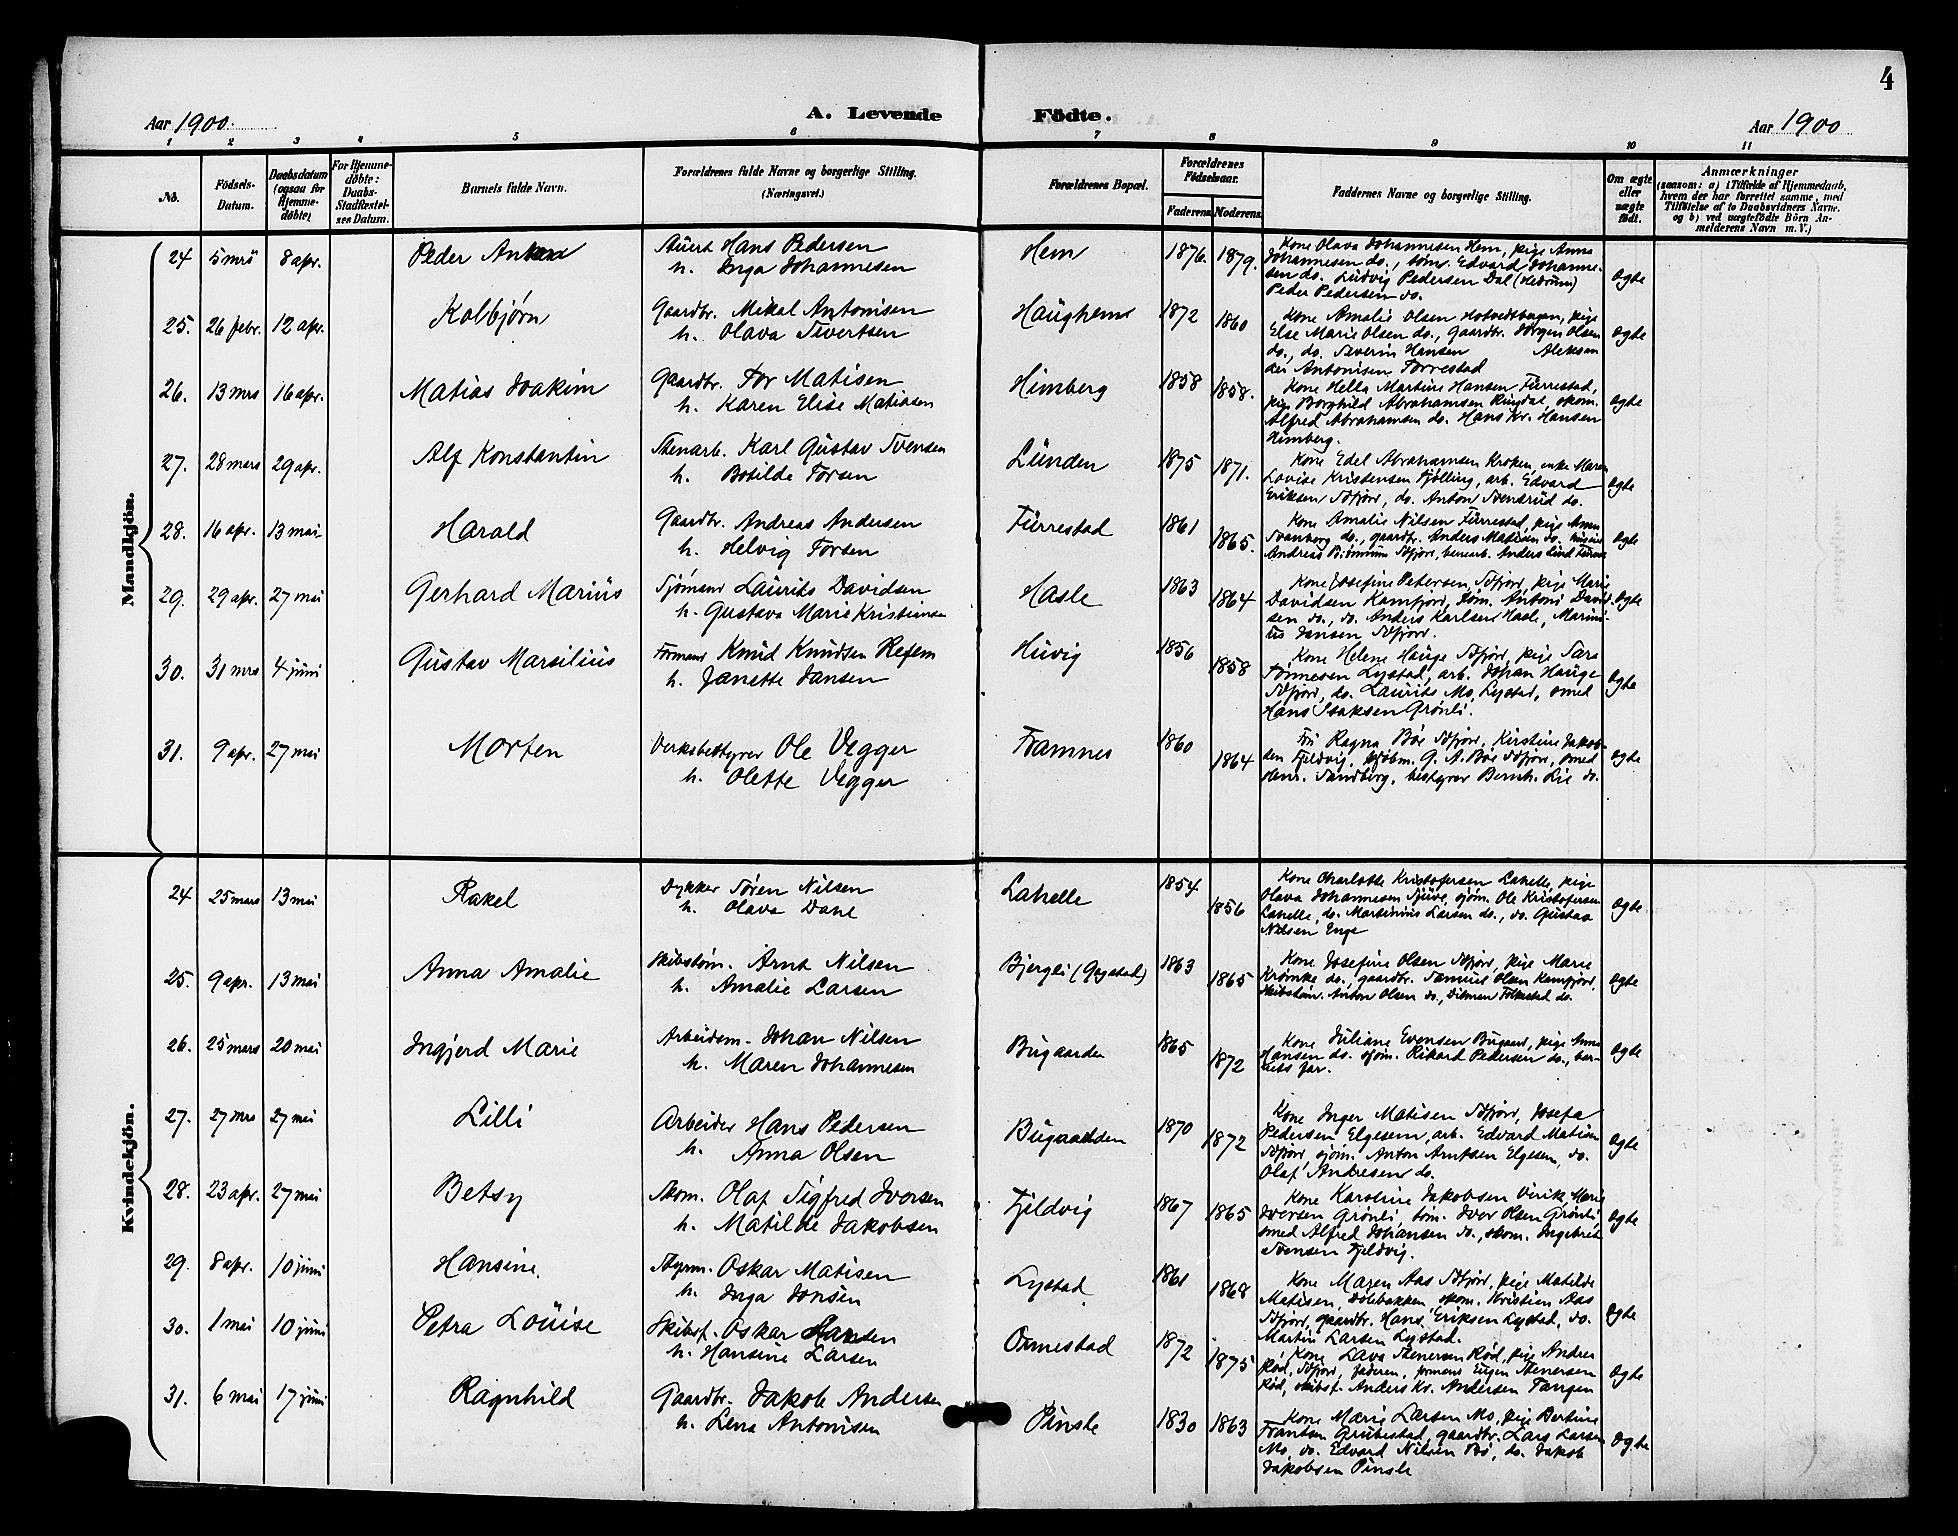 4
Aar 1900. A. Levende Fødte. Aar 1900
1 2 3 4 5 6 7 8 9 10 11
No. Fødsels-Datum. Daabsdatum (ogsaa for Hjemmedøbte) For Hjemmedøbte: Daabs-Stadfæstelses Datum. Barnets fulde Navn. Forældrenes fulde Navne og borgerlige Stilling. (Næringsvei.) Forældrenes Bopæl. Forældrenes Fødselsaar. Faderens. Moderens. Faddernes Navne og borgerlige Stilling. Om ægte eller uægte født. Anmærkninger (saasom: a) i Tilfælde af Hjemmedaab, hvem der har forrettet samme, med Tilføielse af to Daabsvidners Navne. og b) ved uægtefødte Børn Anmelderens Navn m. V.)
Mandkjön.
24 5 mrs 8 apr. Peder Stuert Hans Pedersen Hem 1876. 1879. Kone Olava Johannesen Hem, pige Anna
h. Inga Johannesen Johannesen do., tøm. Edvard Johanne-
sen do. Ludvig Pedersen Dal (Hedrum) ægte
Peder Pedersen do.
25. 26 febr. 12 apr. Kolbjørn Gaardbr. Mikal Antonisen Haughem 1872 1860 Kone Amalie Olsen Hotvedthagen, pige
h. Olava Sivertsen Else Marie Olsen do., gaardbr. Jørgen Olsen ægte
do., do. Severin Hansen Aleksan
der Antonisen Forrestad
26. 13 mrs 16 apr. Matias Joakim Gaardbr. Tor Matisen Himberg 1858 1858. Kone Hella Martine Hansen Furrestad,
h. Karen Elise Matiasen pige Borghild Abrahamsen Ringdal, skom. ægte
Alfred Abrahamsen do. Hans Kr. Hansen
Himberg.
27. 28 mars 29 apr. Alf Konstantin Stenarb. Karl Gustav Svensen Lunden 1875 1871. Kone Edel Abrahamsen Kroken, enke Maren
h. Botilde Torsen Lovise Kristensen Tjølling, arb. Edvard ægte
Eriksen Sdfjord, do. Anton Svensrud do.
28. 16 apr. 13 mai Harald Gaardbr. Andreas Andersen Furrestad 1861 1865. Kone Amalie Nilsen Furrestad, pige Anna
h. Helvig Torsen Svanberg do., gaardbr. Anders Matisen do. ægte
Andreas Sdfjord, stenarb. Anders Lind
29. 29 apr. 27 mai Gerhard Marius Sjømand Laurits Davidsen Hasle 1863 1864 Kone Josefine Petersen, Sdfjord, pige Marie
h. Gustava Marie Kristiansen Davidsen Kamfjord, tøm. Antoni David- ægte
sen do., do. Anders Karlsen Hasle, Marini-
us Jansen Sdfjord.
30. 31 mrs 4 juni Gustav Marsilius Formand Knud Knudsen Refsem Huvig 1856 1858 Kone Helene Hauge Sdfjord, pige Sara
h. Janette Jansen Tønnesen Lystad, arb. Johan Hauge ægte
Sdfjord, do. Laurits Mo, Lystad, smed
Hans Isaksen Grønli.
31. 9 apr. 27 mai Morten Verksbestyrer Ole Vegger Framnes 1860 1864 Fru Ragna Bøe Sdfjord, Kirstine Jakob-
h. Olette Vegger sen Fjeldvig, kjøbm. G. A. Bøe Sdfjord, smed ægte
Hans. Sandberg, bestyrer Bernh. Lie do.
Kvindekjön.
24 25 mars 13 mai Rakel Dykker Søren Nilsen Lahelle 1854 1856 Kone Charlotte Kristofersen Lahelle, pige
h. Olava Dane Olava Johannesen Tjuve, sjøm. Ole Kristofersen ægte
Lahelle, do. Marsinius Larsen do., do. Gustav
Nilsen Enge
25. 9 apr. 13 mai Anna Amalie Skibstøm. Arnt Nilsen Bjergli (Gogstad) 1863 1865 Kone Josefine Olsen Sdfjord, pige Marie
h. Amalie Larsen Krømke do., gaardbr. Samuel Olsen Kamfjord, ægte
Skibstøm. Anton Olsen do., Ditman Folkestad do.
26. 25 mars 20 mai Ingjerd Marie Arbeidsm. Johan Nilsen Bugaarden 1865 1872 Kone Juliane Evensen Bugaard, pige Anna
h. Maren Johannesen Hansen do. sjøm. Rikard Pedersen do., bar- ægte
nets far.
27. 27 mrs 27 mai Lilli Arbeider Hans Pedersen Bugaarden 1870 1872 Kone Inger Matisen Sdfjord, Josefa
h. Anna Olsen Pedersen Elgesem, arb. Edvard Matisen ægte
Sdfjord, sjøm. Anton Arntsen Elgesem, do.
Olaf Andresen do.
28. 23 apr. 27 mai Betsy Skom. Olaf Sigfred Iversen Fjeldvig 1867 1865 Kone Karoline Jakobsen Virik, Marie
h. Matilde Jakobsen Iversen Grønli, tøm. Iver Olsen Grønli, ægte
smed Alfred Johansen do., skom. Ingebret
Svensen Fjeldvig.
29. 8 apr. 10 juni Hansine. Styrm. Oskar Matisen Lystad 1861 1868 Kone Maren Aas Sdfjord, pige Matilde
h. Inga Jonsen Matisen, Dølebakken, skom. Kristian Aas ægte
Sdfjord, gaardbr. Hans Eriksen Lystad, do.
Martin Larsen Lystad.
30. 1 mai 10 juni Petra Louise Skibsf. Oskar Hansen Ormestad 1872 1875 Kone Lava Stenersen Rød, pige Andrea
h. Hansine Larsen Rød, Sdfjord, faderen, formand Eugen Stenersen ægte
Rød, skibsf. Anders Kr. Andersen Tangen
31. 6 mai 17 juni Ragnhild Gaardbr. Jakob Andersen Pinsle 1830 1863 Kone Marie Larsen Mo, pige Bertine
h. Lena Antonisen Frantsen Grubestad, gaardbr. Lars Larsen ægte
Mo, do. Edvard Nilsen Bø, do. Jakob
Jakobsen Pinsle